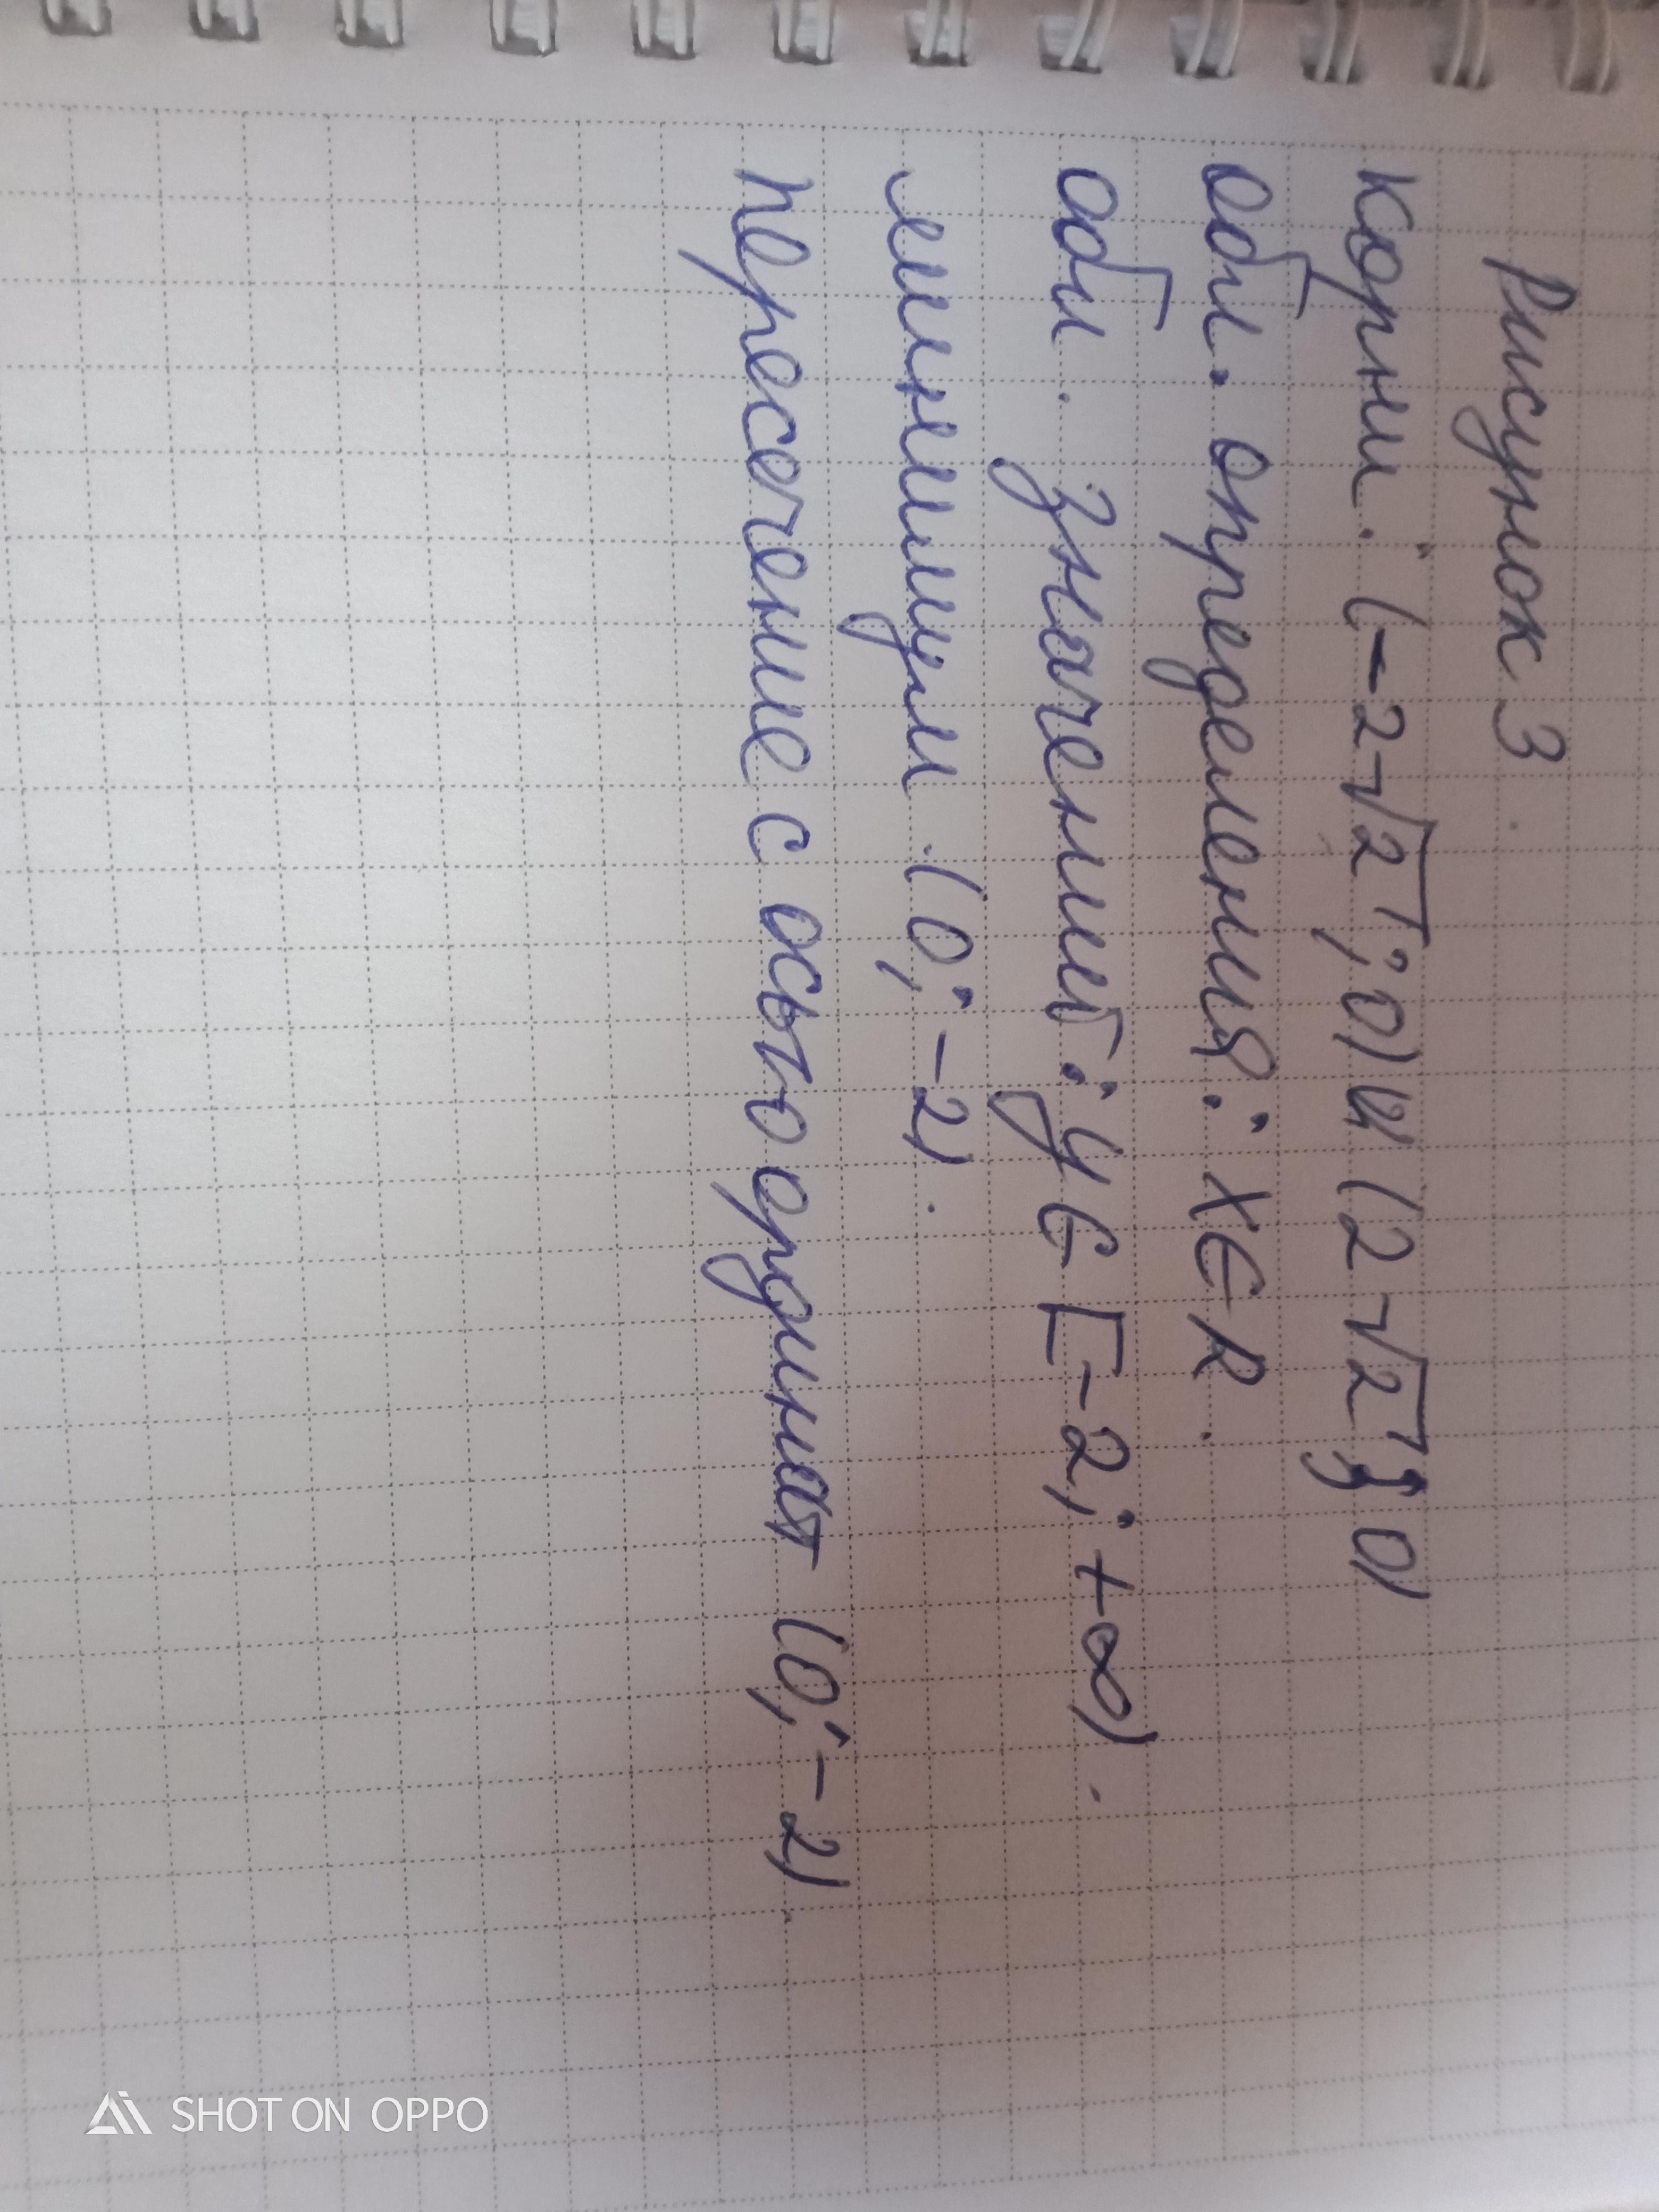 Рисунок 3.
корни: (-2√2; 0) и (2√2; 0)
обл. определения: x∈R.
обл. значений: y∈[-2; +∞).
минимум (0; -2).
пересечение с осью ординат (0; -2).
SHOT ON OPPO